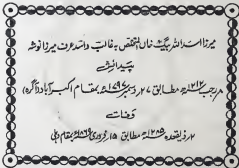 میرزا اسد اللہ بیگ خاں المتخلص بہ غالب و اسد عرف میرزا نوشہ
پیدائش
۸ رجب ۱۲۱۲ھ مطابق ۲۷ دسمبر ۱۷۹۷ء بمقام اکبر آباد (آگرہ)
وفات
۲ ذیقعدہ ۱۲۸۵ھ مطابق ۱۵ فروری ۱۸۶۹ء بمقام دہلی